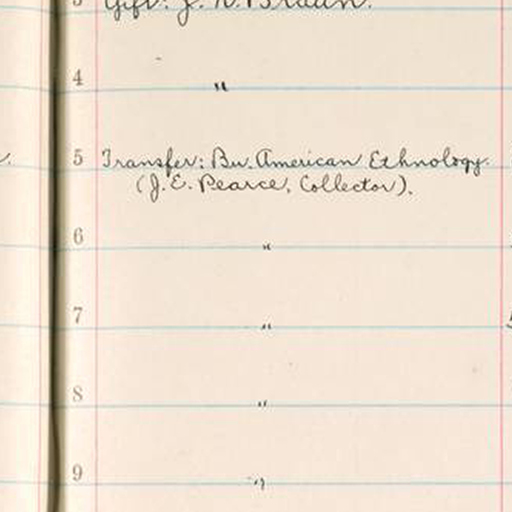 3 Gift: J. N. Braun.
4 "
5 Transfer: Bu. American Ethnology.
(J. E. Pearce, Collector).
6 "
7 "
8 "
9 "